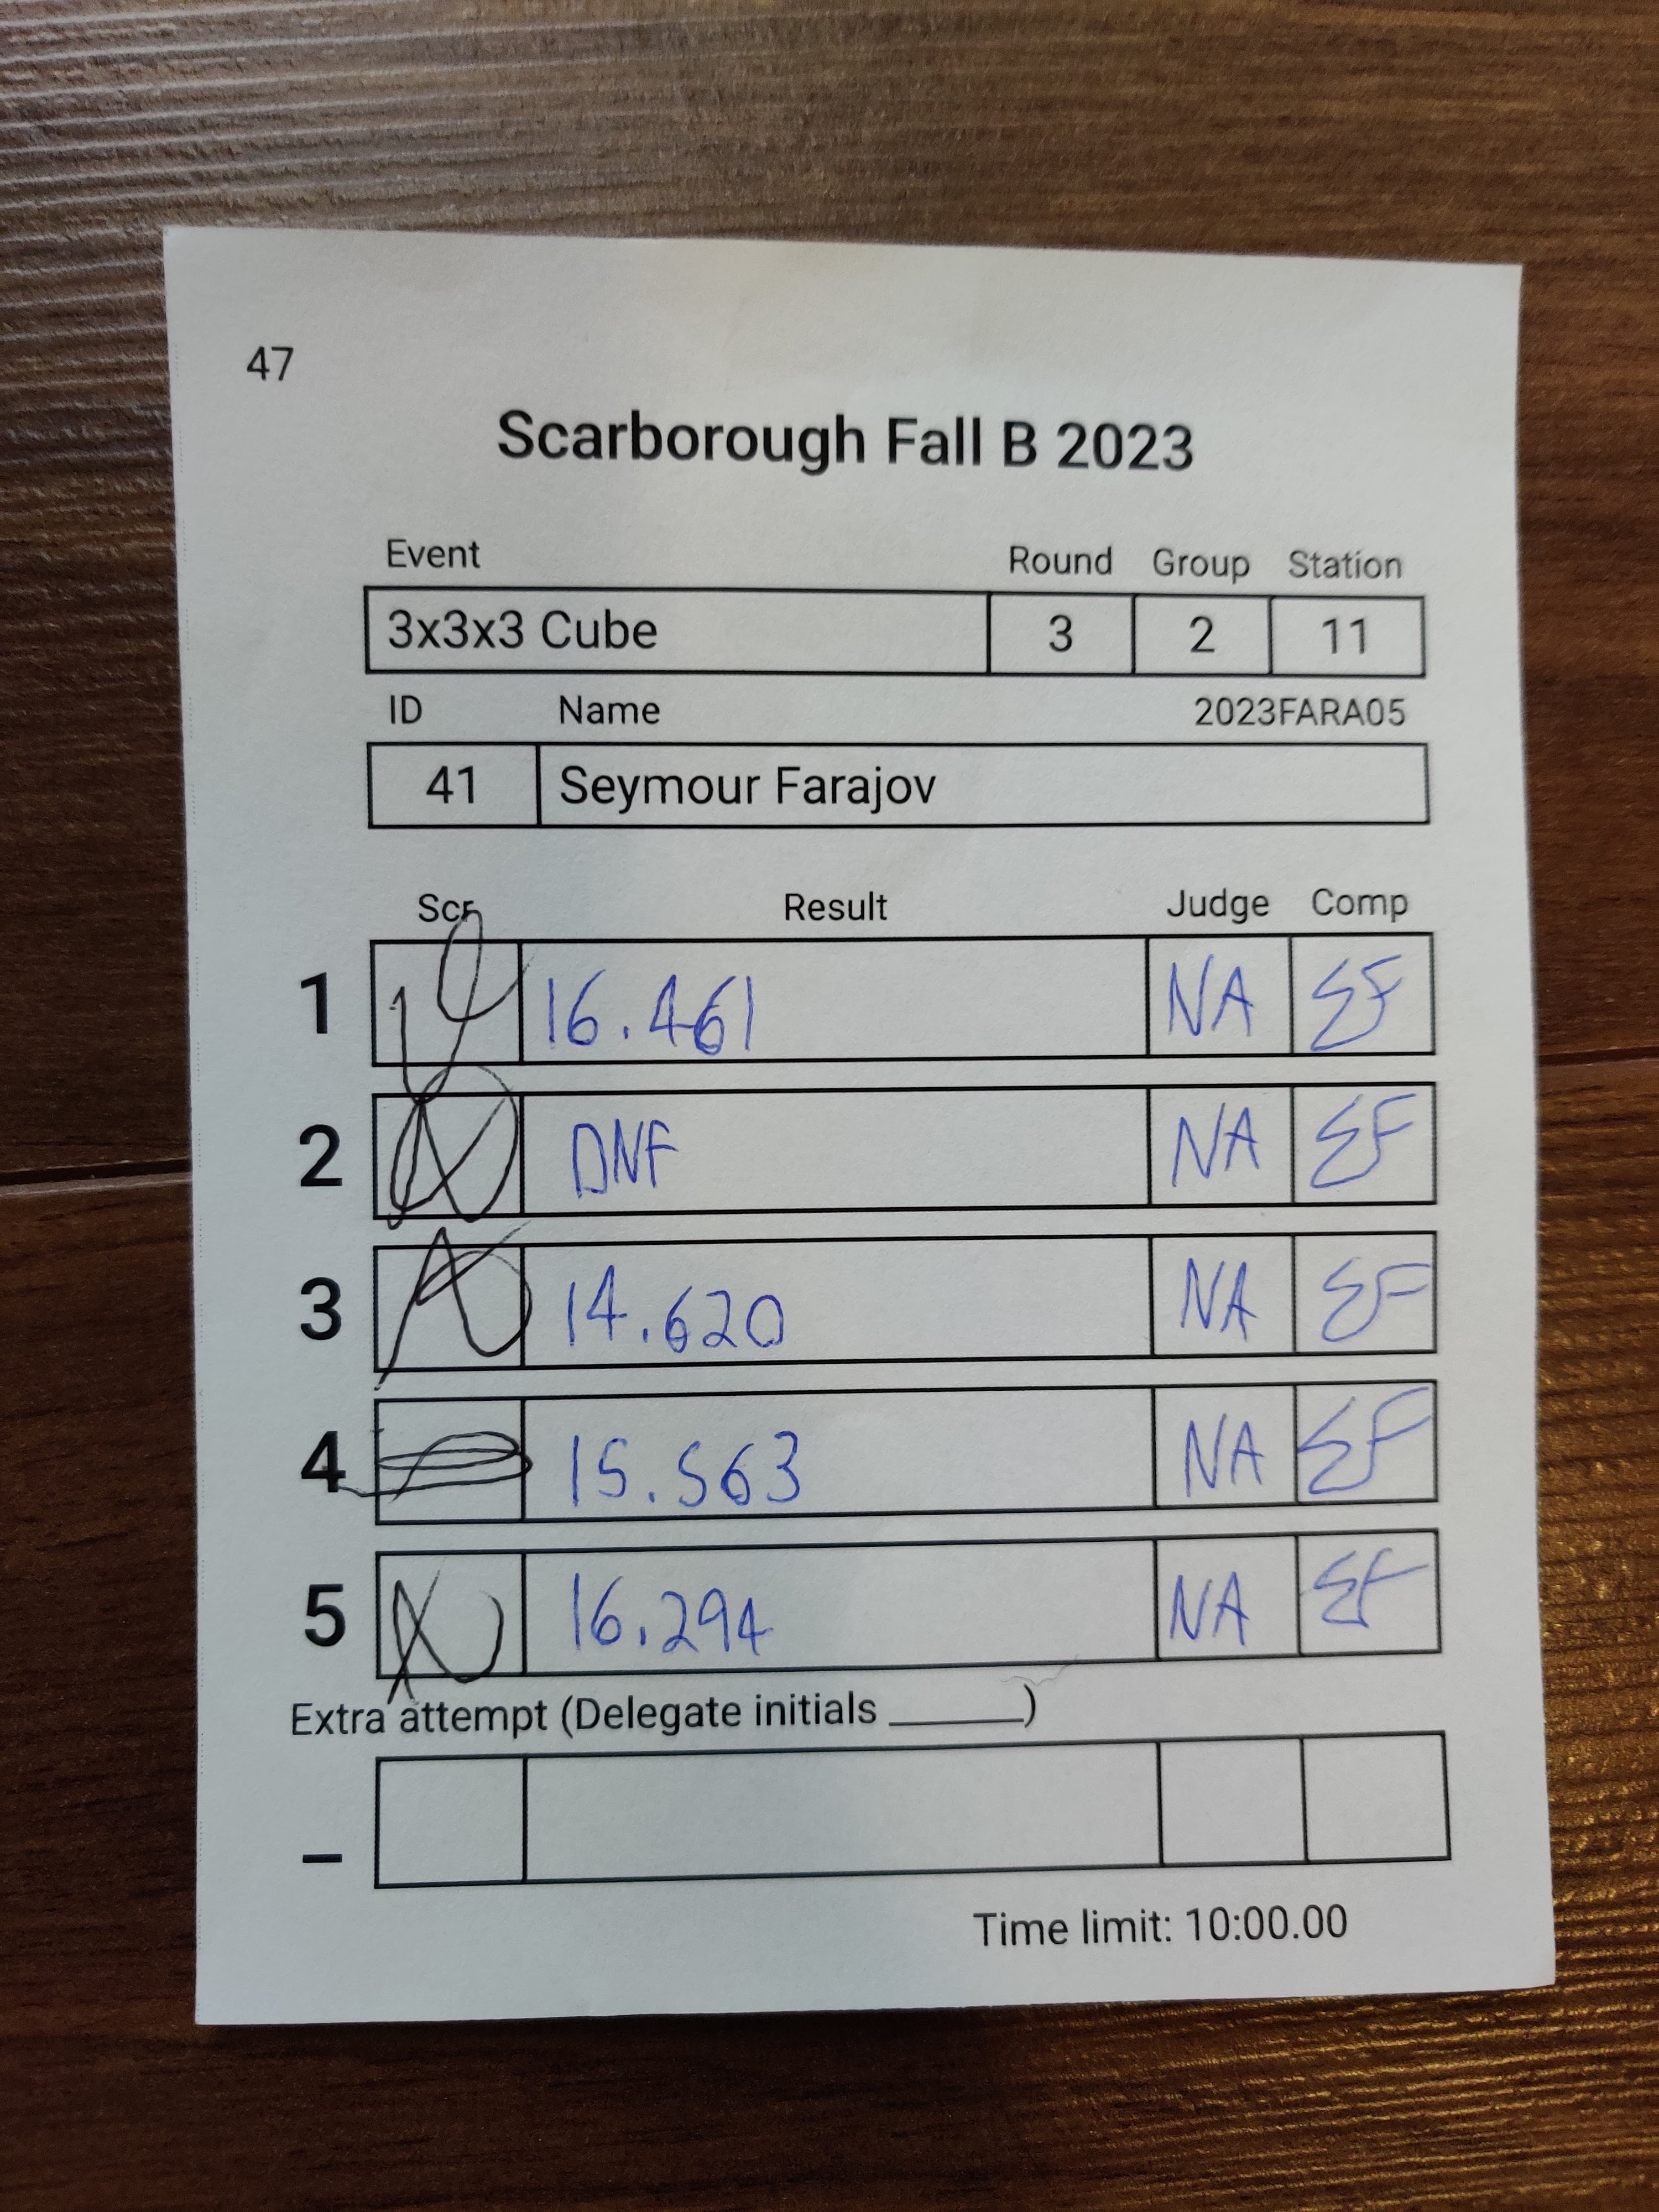 47
Scarborough Fall B 2023
Event Round Group Station
3x3x3 Cube 3 2 11
ID Name 2023FARA05
41 Seymour Farajov
Scr Result Judge Comp
1 16.461 NA SF
2 DNF NA SF
3 14.620 NA SF
4 15.563 NA SF
5 16.294 NA SF
Extra attempt (Delegate initials ______)
–
Time limit: 10:00.00